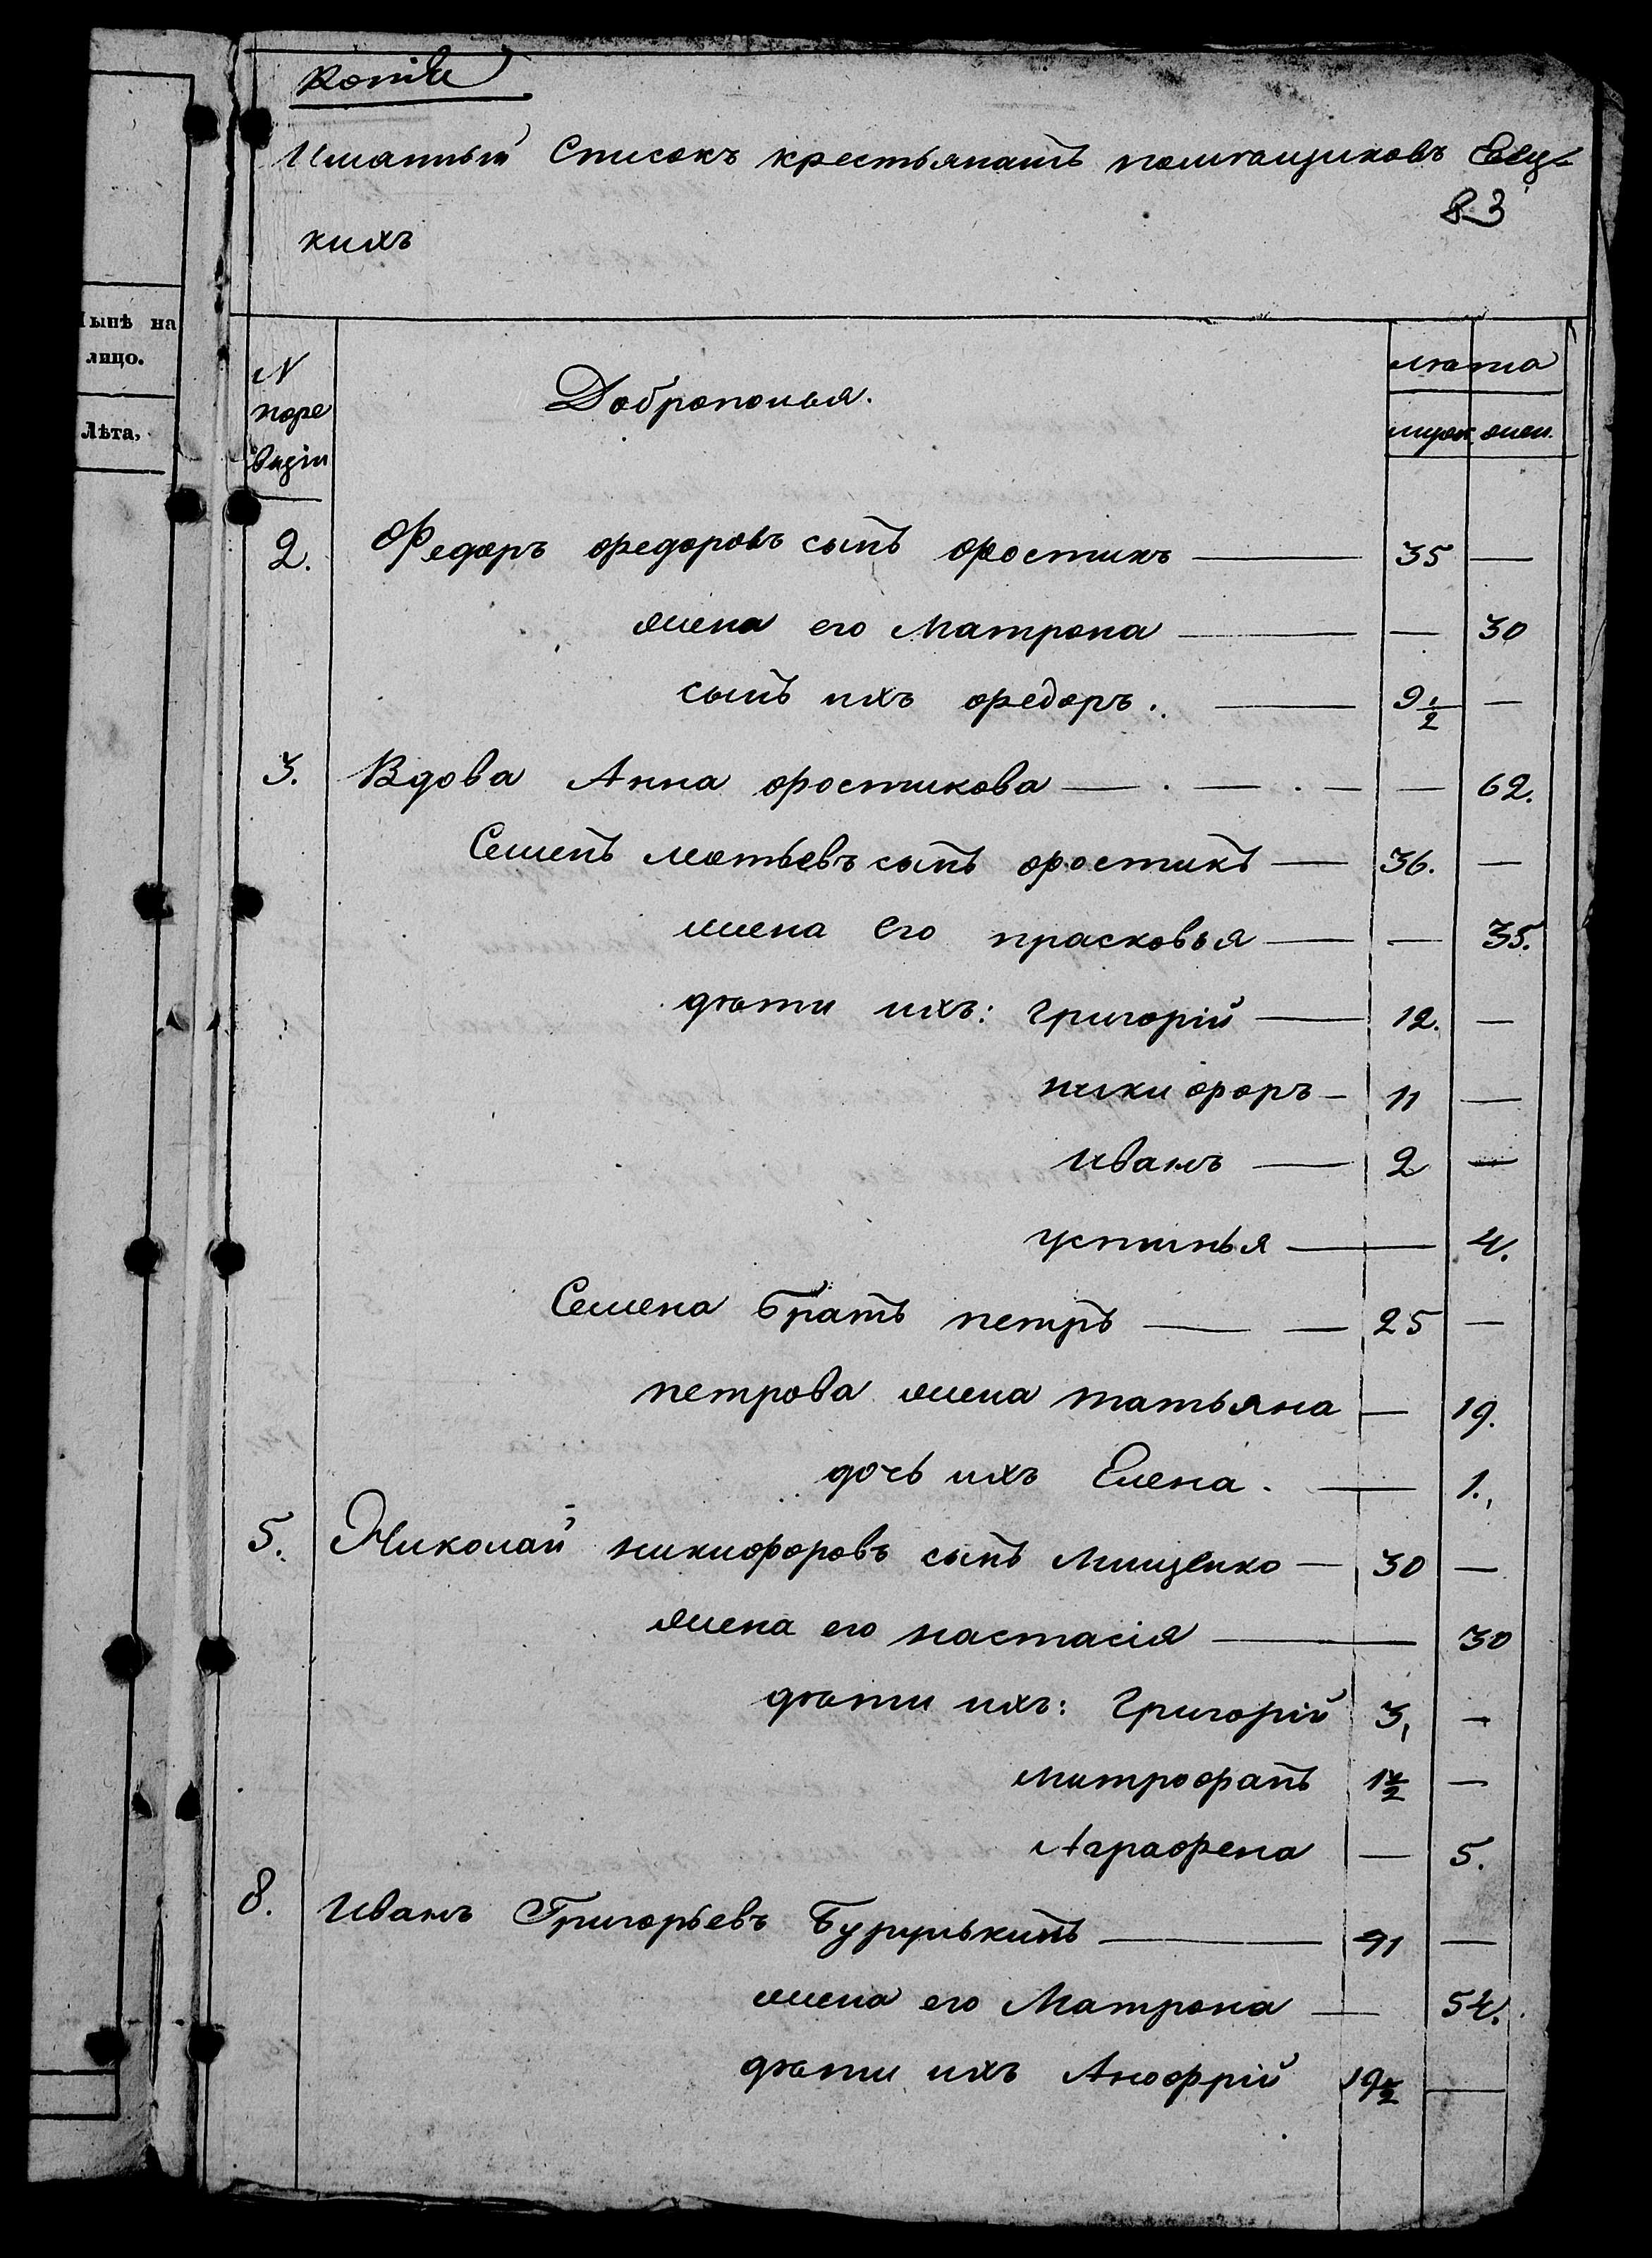 Копія
Имянный Списокъ крестьянамъ помѣщиковъ
83
кихъ
ынѣ на
лицо.
Лѣта,
N
поре
визіи
Доброполья.
лѣта
муж. жен.
2. Федоръ федоровъ сынъ фостикъ — 35 —
жена его Матрона — — 30
сынъ ихъ федоръ. — 9 1/2 —
3. Вдова Анна фостикова — — 62.
Семенъ мотьевъ сынъ фостикъ — 36. —
жена его прасковья — — 35.
дѣти ихъ: Григорій — 12. —
никифоръ — 11 —
иванъ — 2 —
устинья — 4.
Семена братъ петръ — — 25 —
петрова жена татьяна — 19.
дочь ихъ Елена. — 1.
5. Николай никифоровъ сынъ Мищенко — 30 —
жена его настасія — 30
дѣти ихъ: Григорій 3, —
митрофанъ 1 1/2 —
Аграфена — 5.
8. Иванъ Григорьевъ — 41 —
жена его Матрона — 54.
дѣти ихъ Анофрій 19 1/2 —